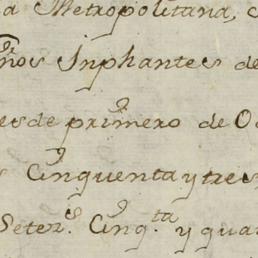 a Metropolitana,
ños Inphantes de
esde primero de Oc
Cinquenta y tres
Seter.s Cinq.ta y qua